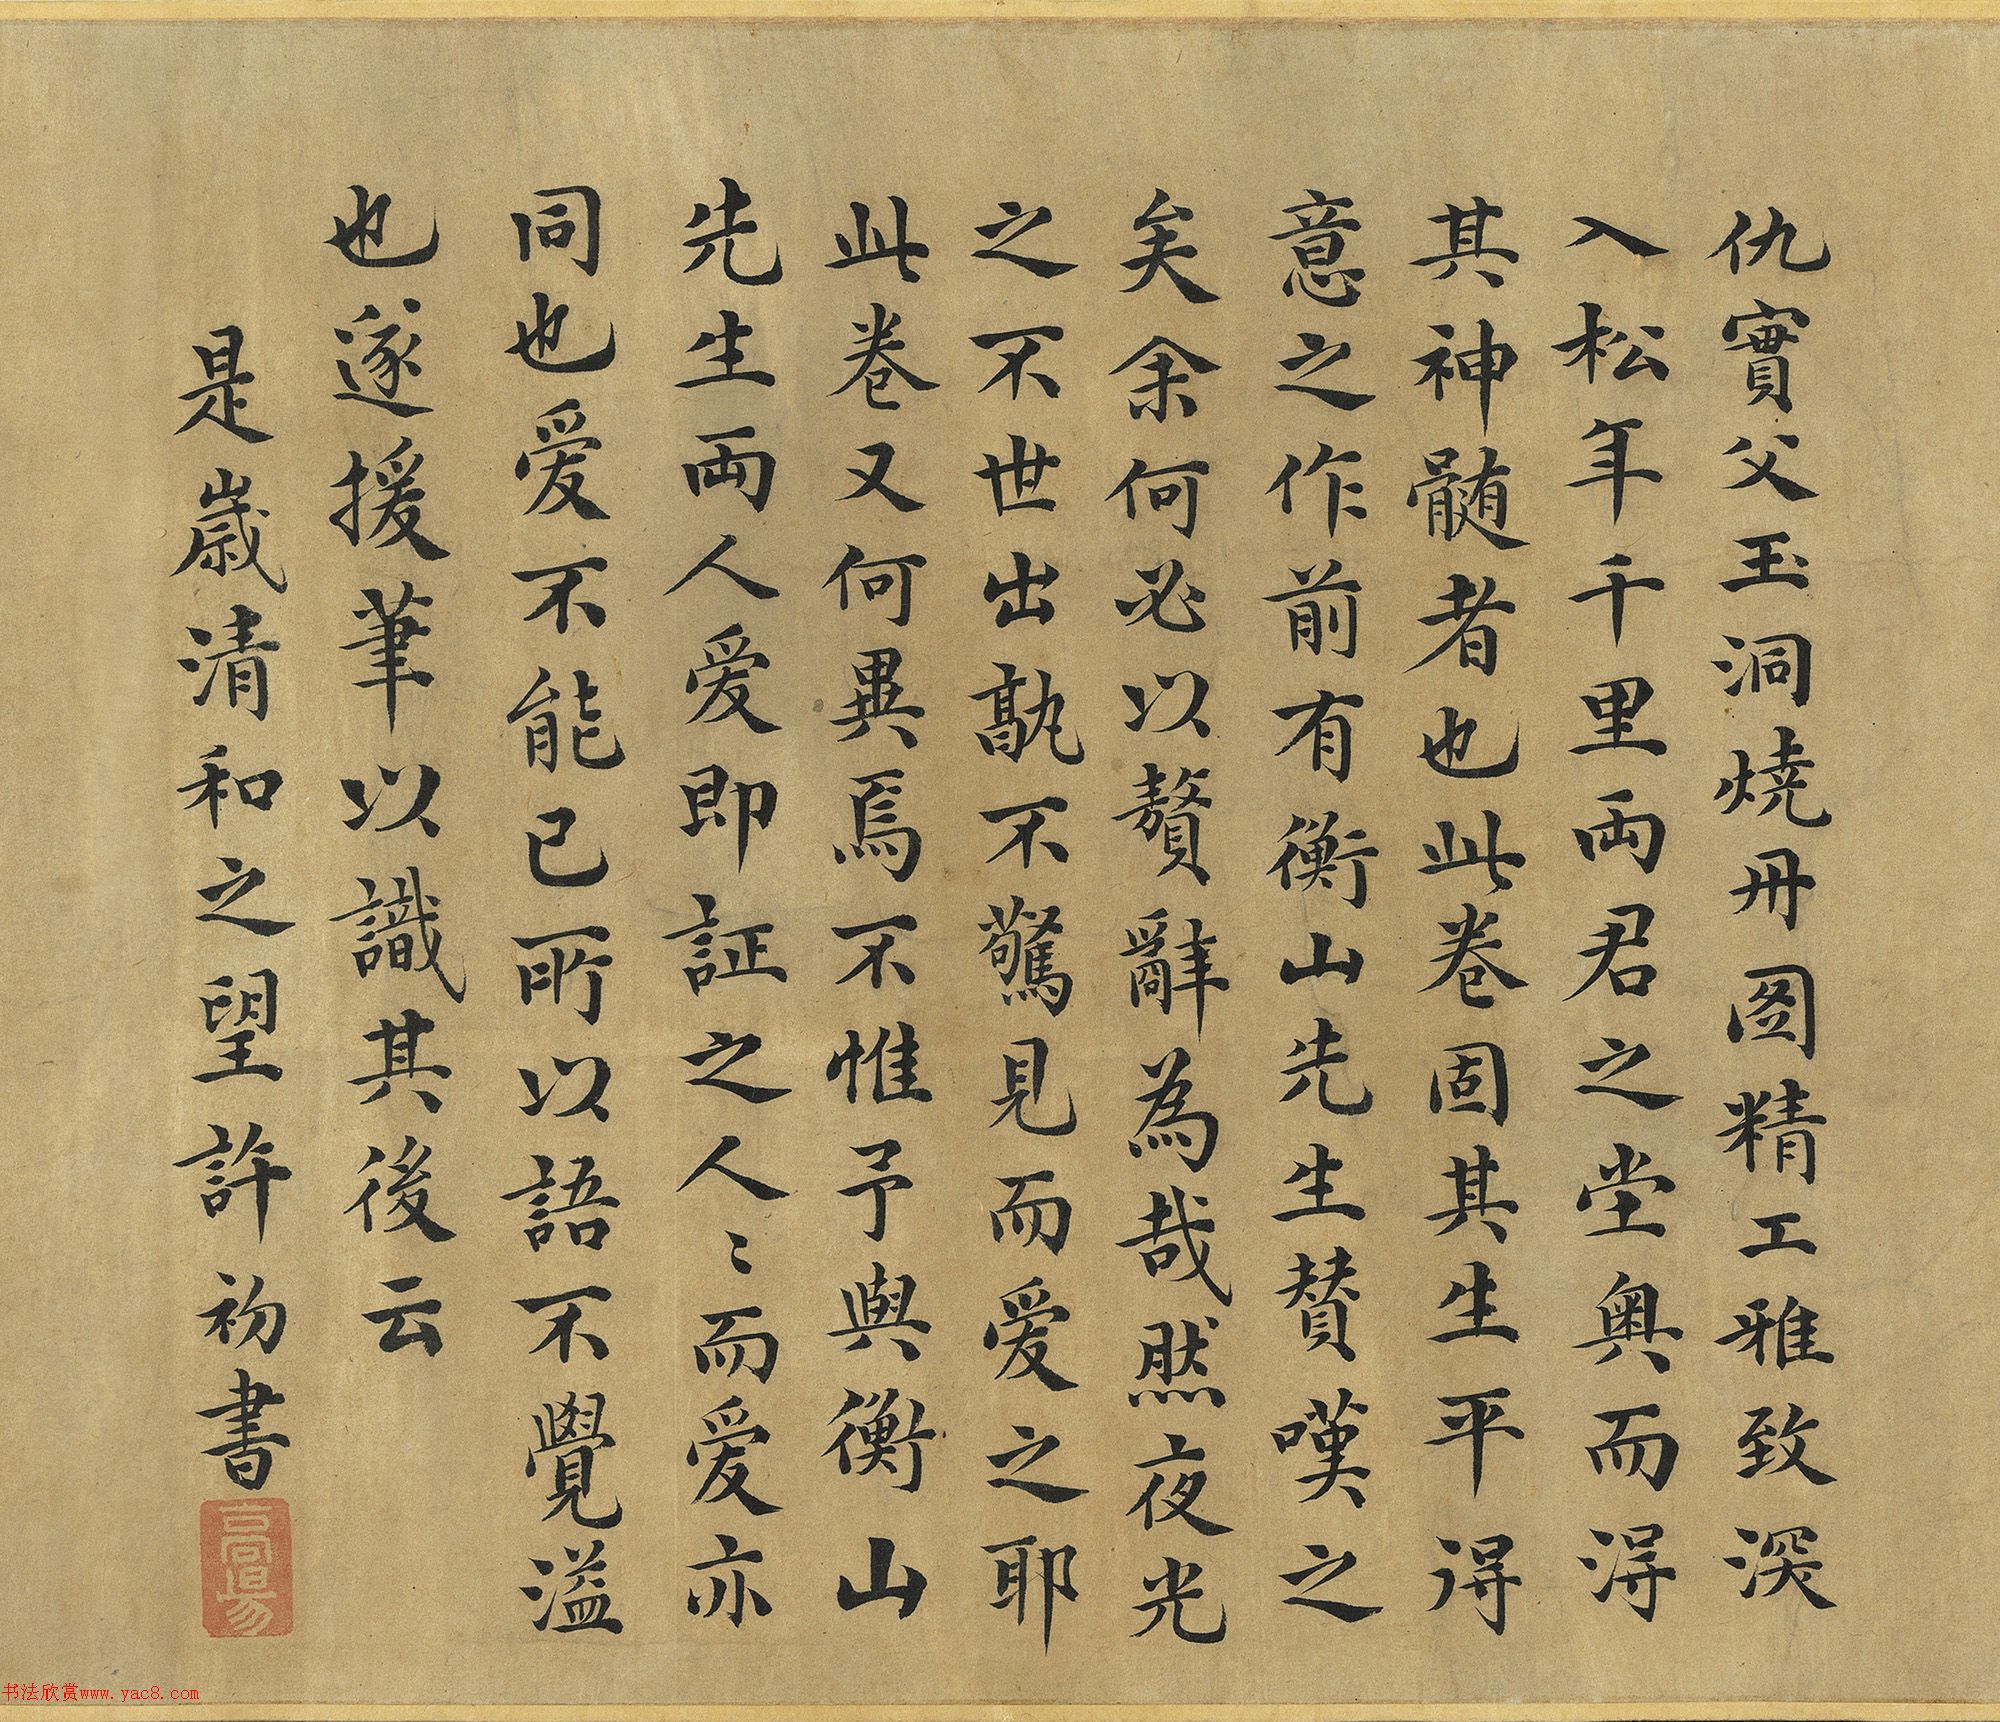 仇實父玉洞燒丹图精工雅致深
入松年千里両君之堂奥而淂
其神髄者也此卷固其生平得
意之作前有衡山先生賛嘆之
矣余何必以贅辭為哉然夜光
之不世出孰不驚見而爱之耶
此卷又何異焉不惟予與衡山
先生両人爱即証之人〻而爱亦
同也爱不能已所以語不覺溢
也遂援筆以識其後云
是歲清和之望許初書
高陽
书法欣赏www.yac8.com